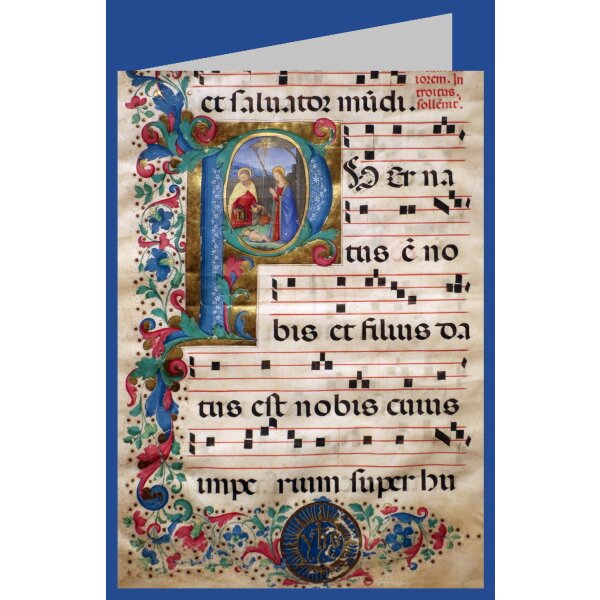 et saluator mūdi.
iorem. In
troitus
sollēnit.
PUEr na
tus ē no
bis et filius da
tus est nobis cuius
impe rium super hu